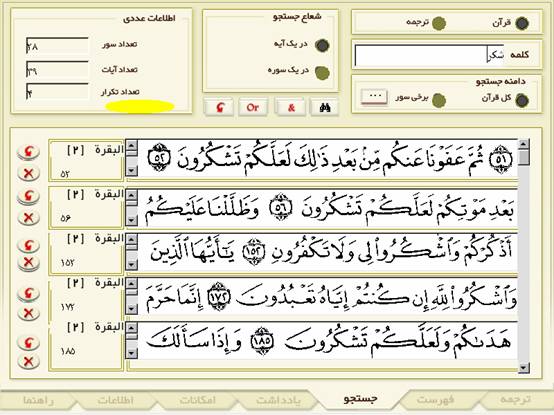 قرآن
ترجمه
کلمه
شکر
دامنه جستجو
کل قرآن
برخی سور
...
شعاع جستجو
در یک آیه
در یک سوره
Or
&
اطلاعات عددی
تعداد سور
۲۸
تعداد آیات
۳۹
تعداد تکرار
۴
البقرة [۲]
۵۲
﴿٥١﴾ ثُمَّ عَفَوْنَا عَنكُم مِّنۢ بَعْدِ ذَٰلِكَ لَعَلَّكُمْ تَشْكُرُونَ ﴿٥٢﴾
البقرة [۲]
۵۶
بَعْدِ مَوْتِكُمْ لَعَلَّكُمْ تَشْكُرُونَ ﴿٥٦﴾ وَظَلَّلْنَا عَلَيْكُمُ
البقرة [۲]
۱۵۲
أَذْكُرْكُمْ وَٱشْكُرُوا۟ لِى وَلَا تَكْفُرُونِ ﴿١٥٢﴾ يَٰٓأَيُّهَا ٱلَّذِينَ
البقرة [۲]
۱۷۲
وَٱشْكُرُوا۟ لِلَّهِ إِن كُنتُمْ إِيَّاهُ تَعْبُدُونَ ﴿١٧٢﴾ إِنَّمَا حَرَّمَ
البقرة [۲]
۱۸۵
هَدَىٰكُمْ وَلَعَلَّكُمْ تَشْكُرُونَ ﴿١٨٥﴾ وَإِذَا سَأَلَكَ
ترجمه
فهرست
جستجو
یادداشت
امکانات
اطلاعات
راهنما